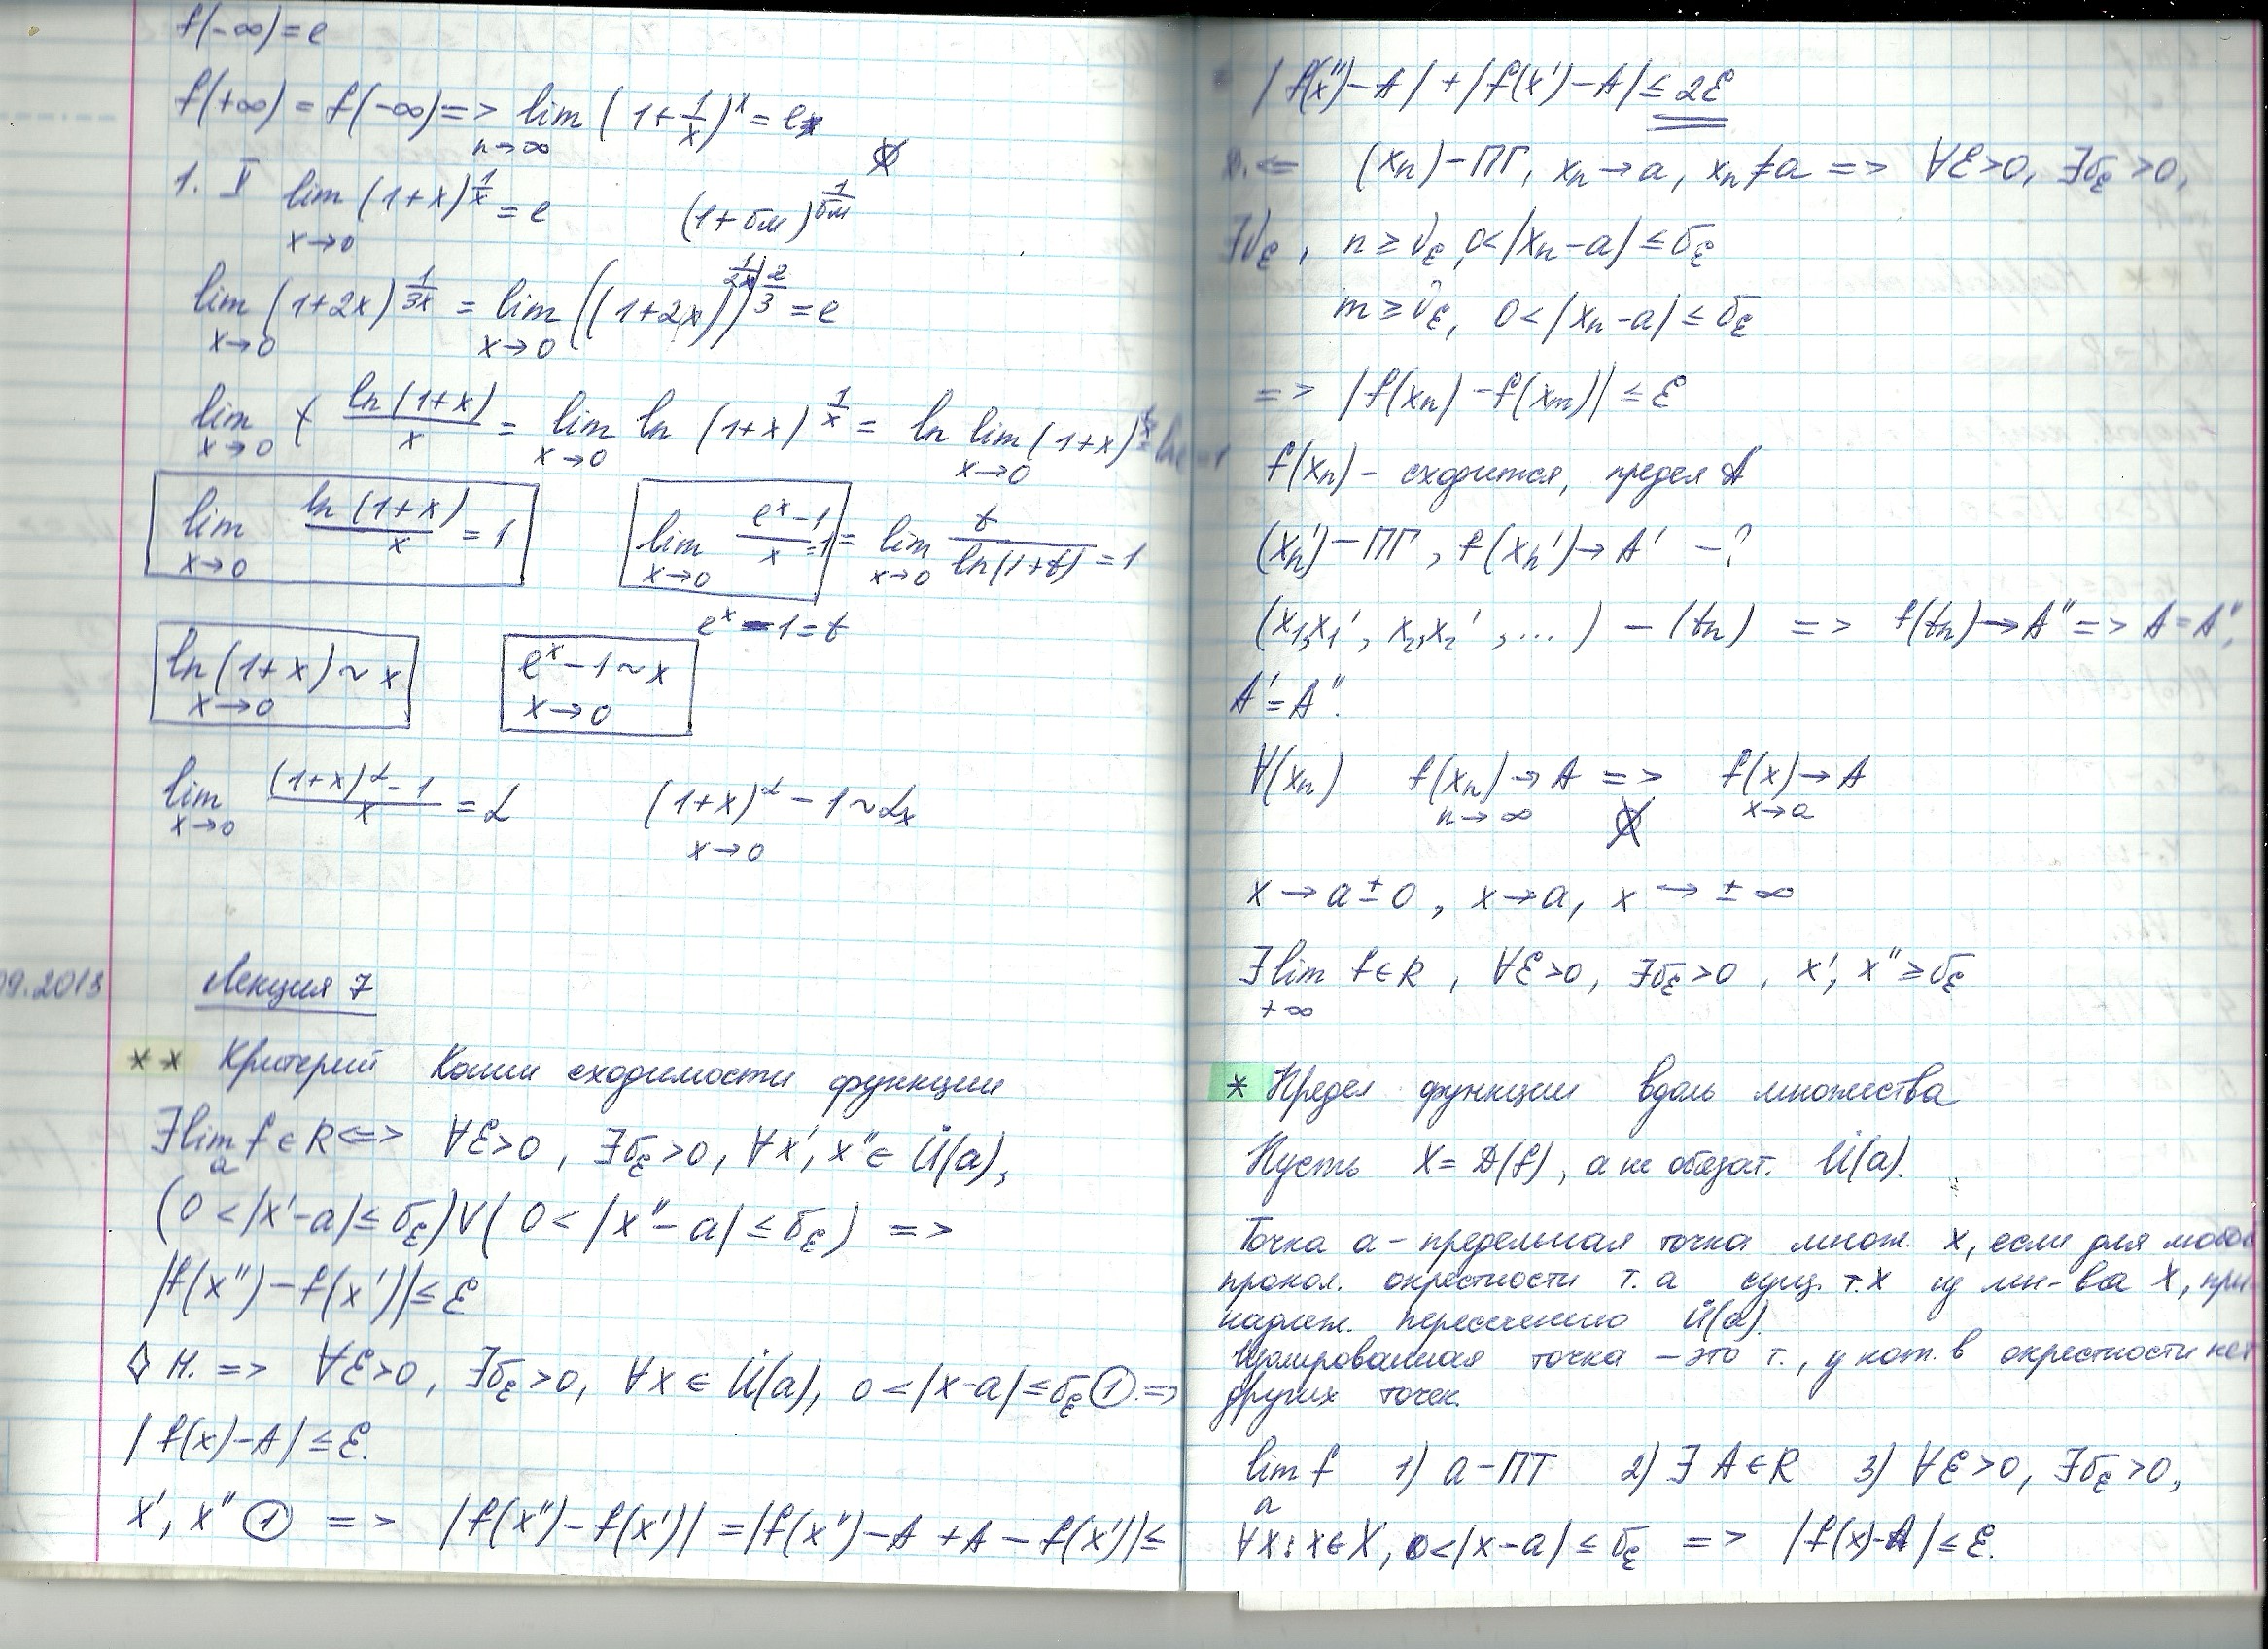 f(-∞) = e
f(+∞) = f(-∞) => lim n→∞ (1 + 1/x)^x = e
1. I lim x→0 (1+x)^(1/x) = e (1+бм)^(1/бм)
lim x→0 (1+2x)^(1/3x) = lim x→0 ((1+2x)^(1/2x))^(2/3) = e
lim x→0 ln(1+x)/x = lim x→0 ln (1+x)^(1/x) = ln lim x→0 (1+x)^(1/x) = ln e = 1
lim x→0 ln(1+x)/x = 1 lim x→0 (e^x - 1)/x = 1 = lim x→0 t/ln(1+t) = 1
e^x - 1 = t
ln(1+x) ~ x x→0 e^x - 1 ~ x x→0
lim x→0 ((1+x)^α - 1)/x = α (1+x)^α - 1 ~ αx x→0
09.2013 Лекция 7
** Критерий Коши сходимости функции
∃ lim a f ∈ R <=> ∀ε>0, ∃δε>0, ∀x', x'' ∈ Ü(a),
(0 < |x'-a| ≤ δε) ∨ (0 < |x''-a| ≤ δε) =>
|f(x'') - f(x')| ≤ ε
◊ Н. => ∀ε>0, ∃δε>0, ∀x ∈ Ü(a), 0 < |x-a| ≤ δε ① =>
|f(x) - A| ≤ ε.
x', x'' ① => |f(x'') - f(x')| = |f(x'') - A + A - f(x')| ≤
|f(x'') - A| + |f(x') - A| ≤ 2ε
<= (xn) - ПГ, xn → a, xn ≠ a => ∀ε>0, ∃δε>0,
∃νε, n ≥ νε, 0 < |xn - a| ≤ δε
m ≥ νε, 0 < |xn - a| ≤ δε
=> |f(xn) - f(xm)| ≤ ε
f(xn) - сходится, предел A
(xn') - ПГ, f(xn') → A' - ?
(x1, x1', x2, x2', ...) - (tn) => f(tn) → A'' => A = A'',
A' = A''.
∀(xn) f(xn) → A n→∞ => f(x) → A x→a
x → a ± 0, x → a, x → ± ∞
∃ lim +∞ f ∈ R, ∀ε>0, ∃δε>0, x', x'' ≥ δε
* Предел функции вдоль множества
Пусть X = D(f), а не обязат. Ü(a).
Точка a - предельная точка множ. X, если для любой
прокол. окрестности т. a сущ. т. x из мн-ва X, при-
надлеж. пересечению Ü(a).
Изолированная точка - это т., у кот. в окрестности нет
других точек.
lim a f 1) a - ПТ 2) ∃ A ∈ R 3) ∀ε>0, ∃δε>0,
∀x: x ∈ X, 0 < |x-a| ≤ δε => |f(x) - A| ≤ ε.